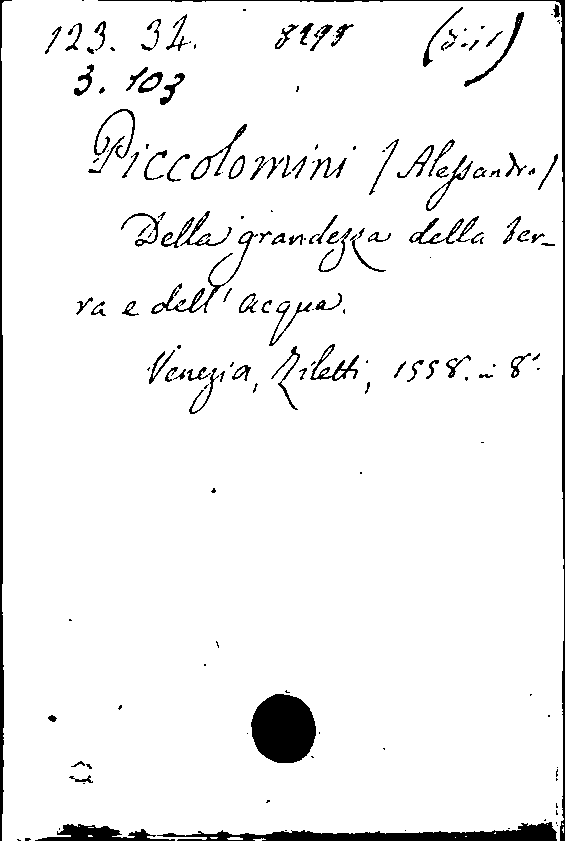 123. 34. 8298
3. 103
Piccolomini (Alessandro)
Della grandezza della ter-
ra e dell' acqua.
Venezia, Ziletti, 1558. in 8°.